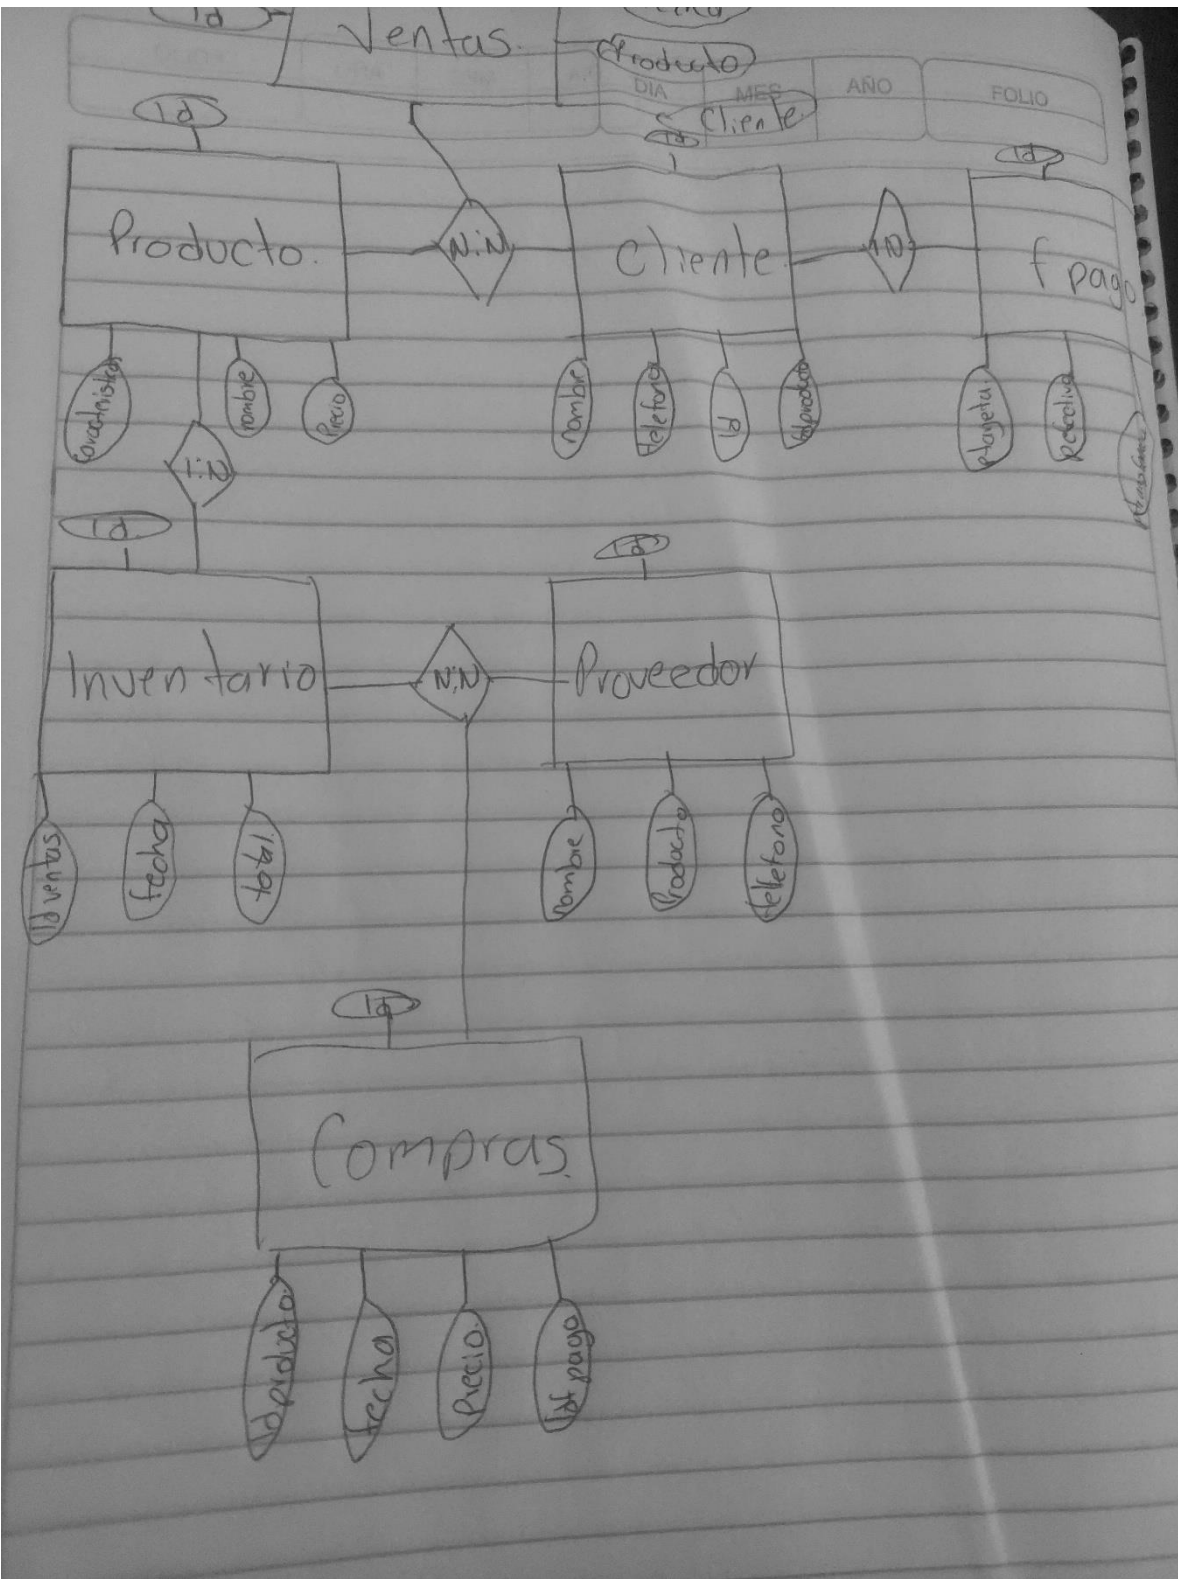 Id
Ventas.
Producto
DIA MES AÑO FOLIO
Cliente
Id
Id
Id
Producto.
N:N
Cliente.
f pago
nombre
Precio
nombre
telefono
Id
Idproducto
1:N
Id
Id
Inventario
N:N
Proveedor
Id ventas
fecha
total.
nombre
Producto
telefono
Id
Compras.
Id producto.
fecha
Precio.
Idf pago